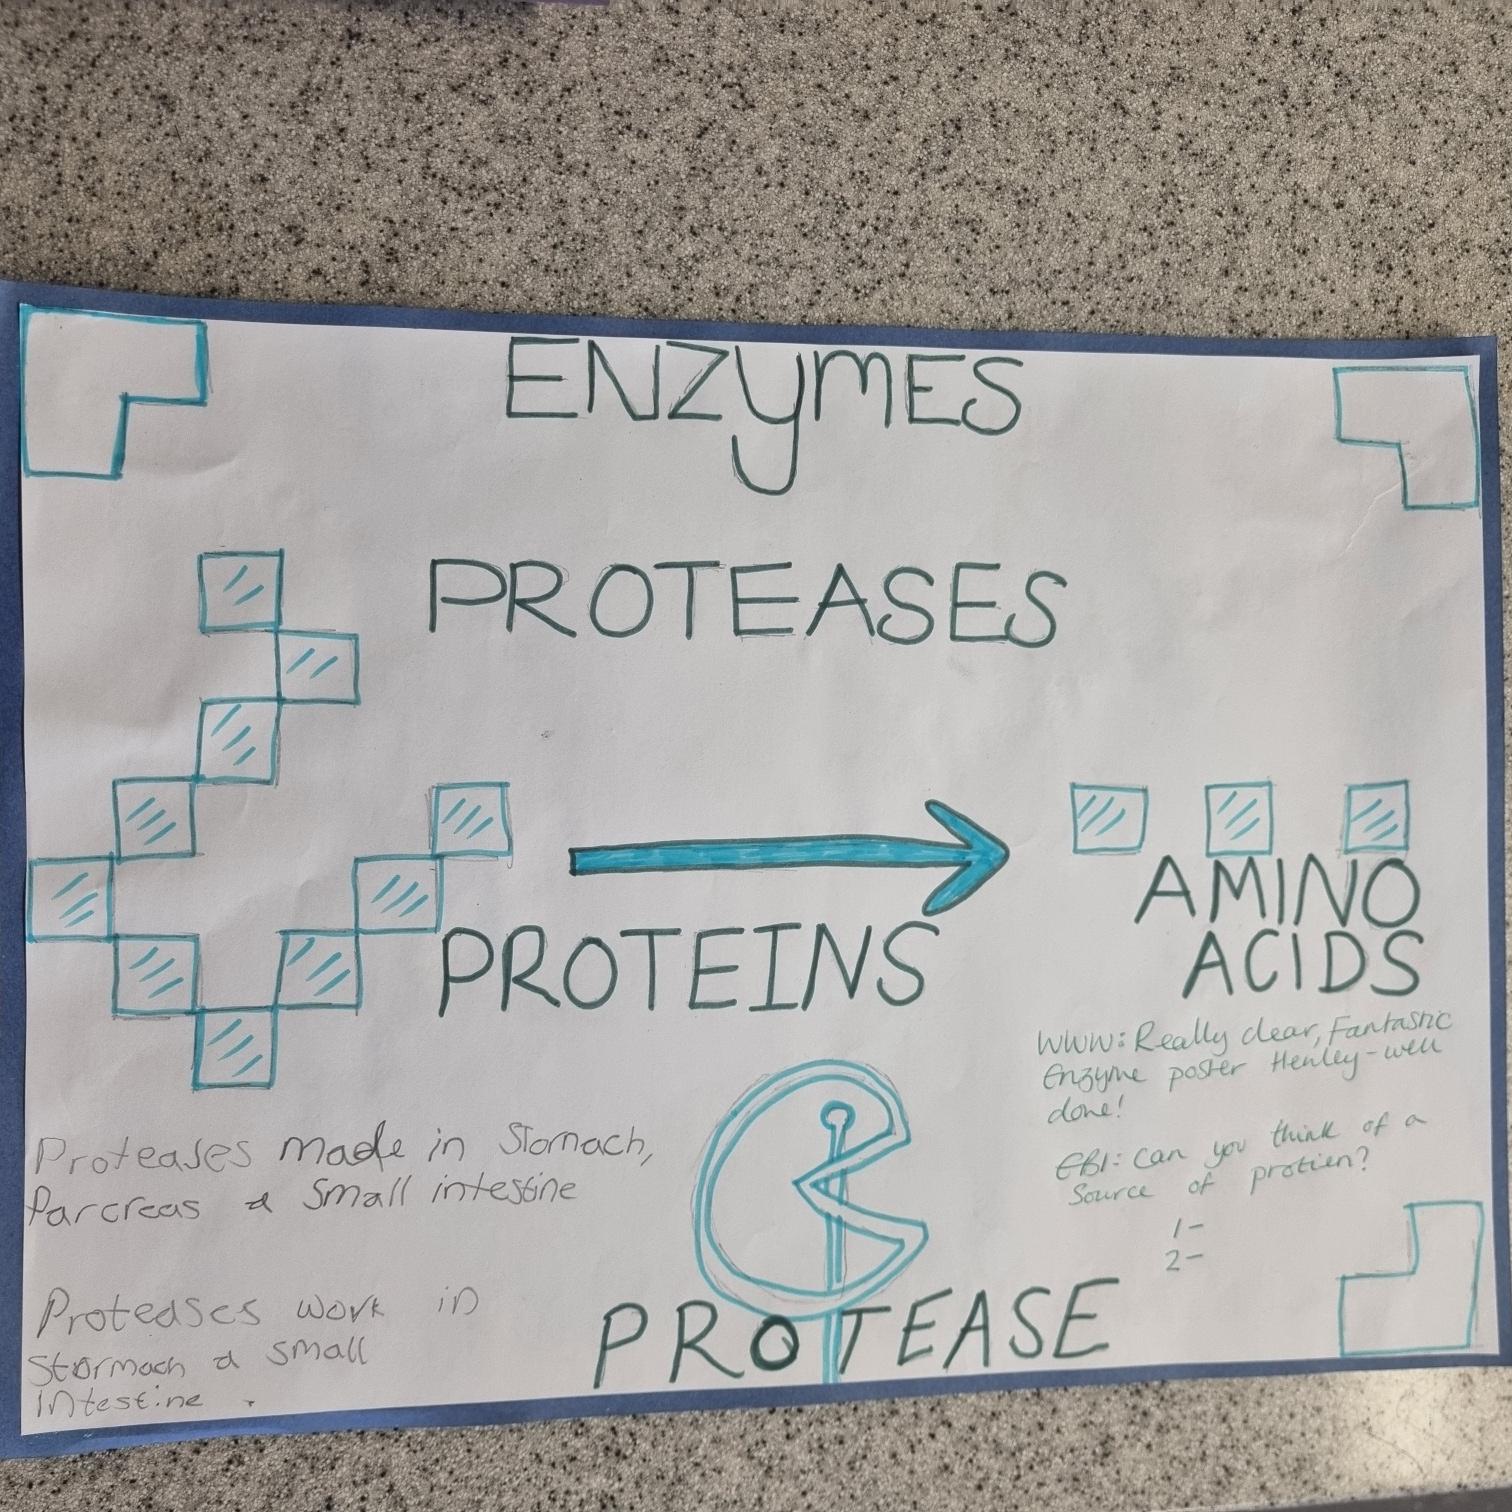 ENZYMES
PROTEASES
PROTEINS
AMINO
ACIDS
WWW: Really clear, Fantastic
Enzyme poster Henley - well
done!
EBI: Can you think of a
Source of protien?
1-
2-
Proteases made in Stomach,
Parcreas & Small intestine
Proteases work in
Stormach & small
Intestine .
PROTEASE